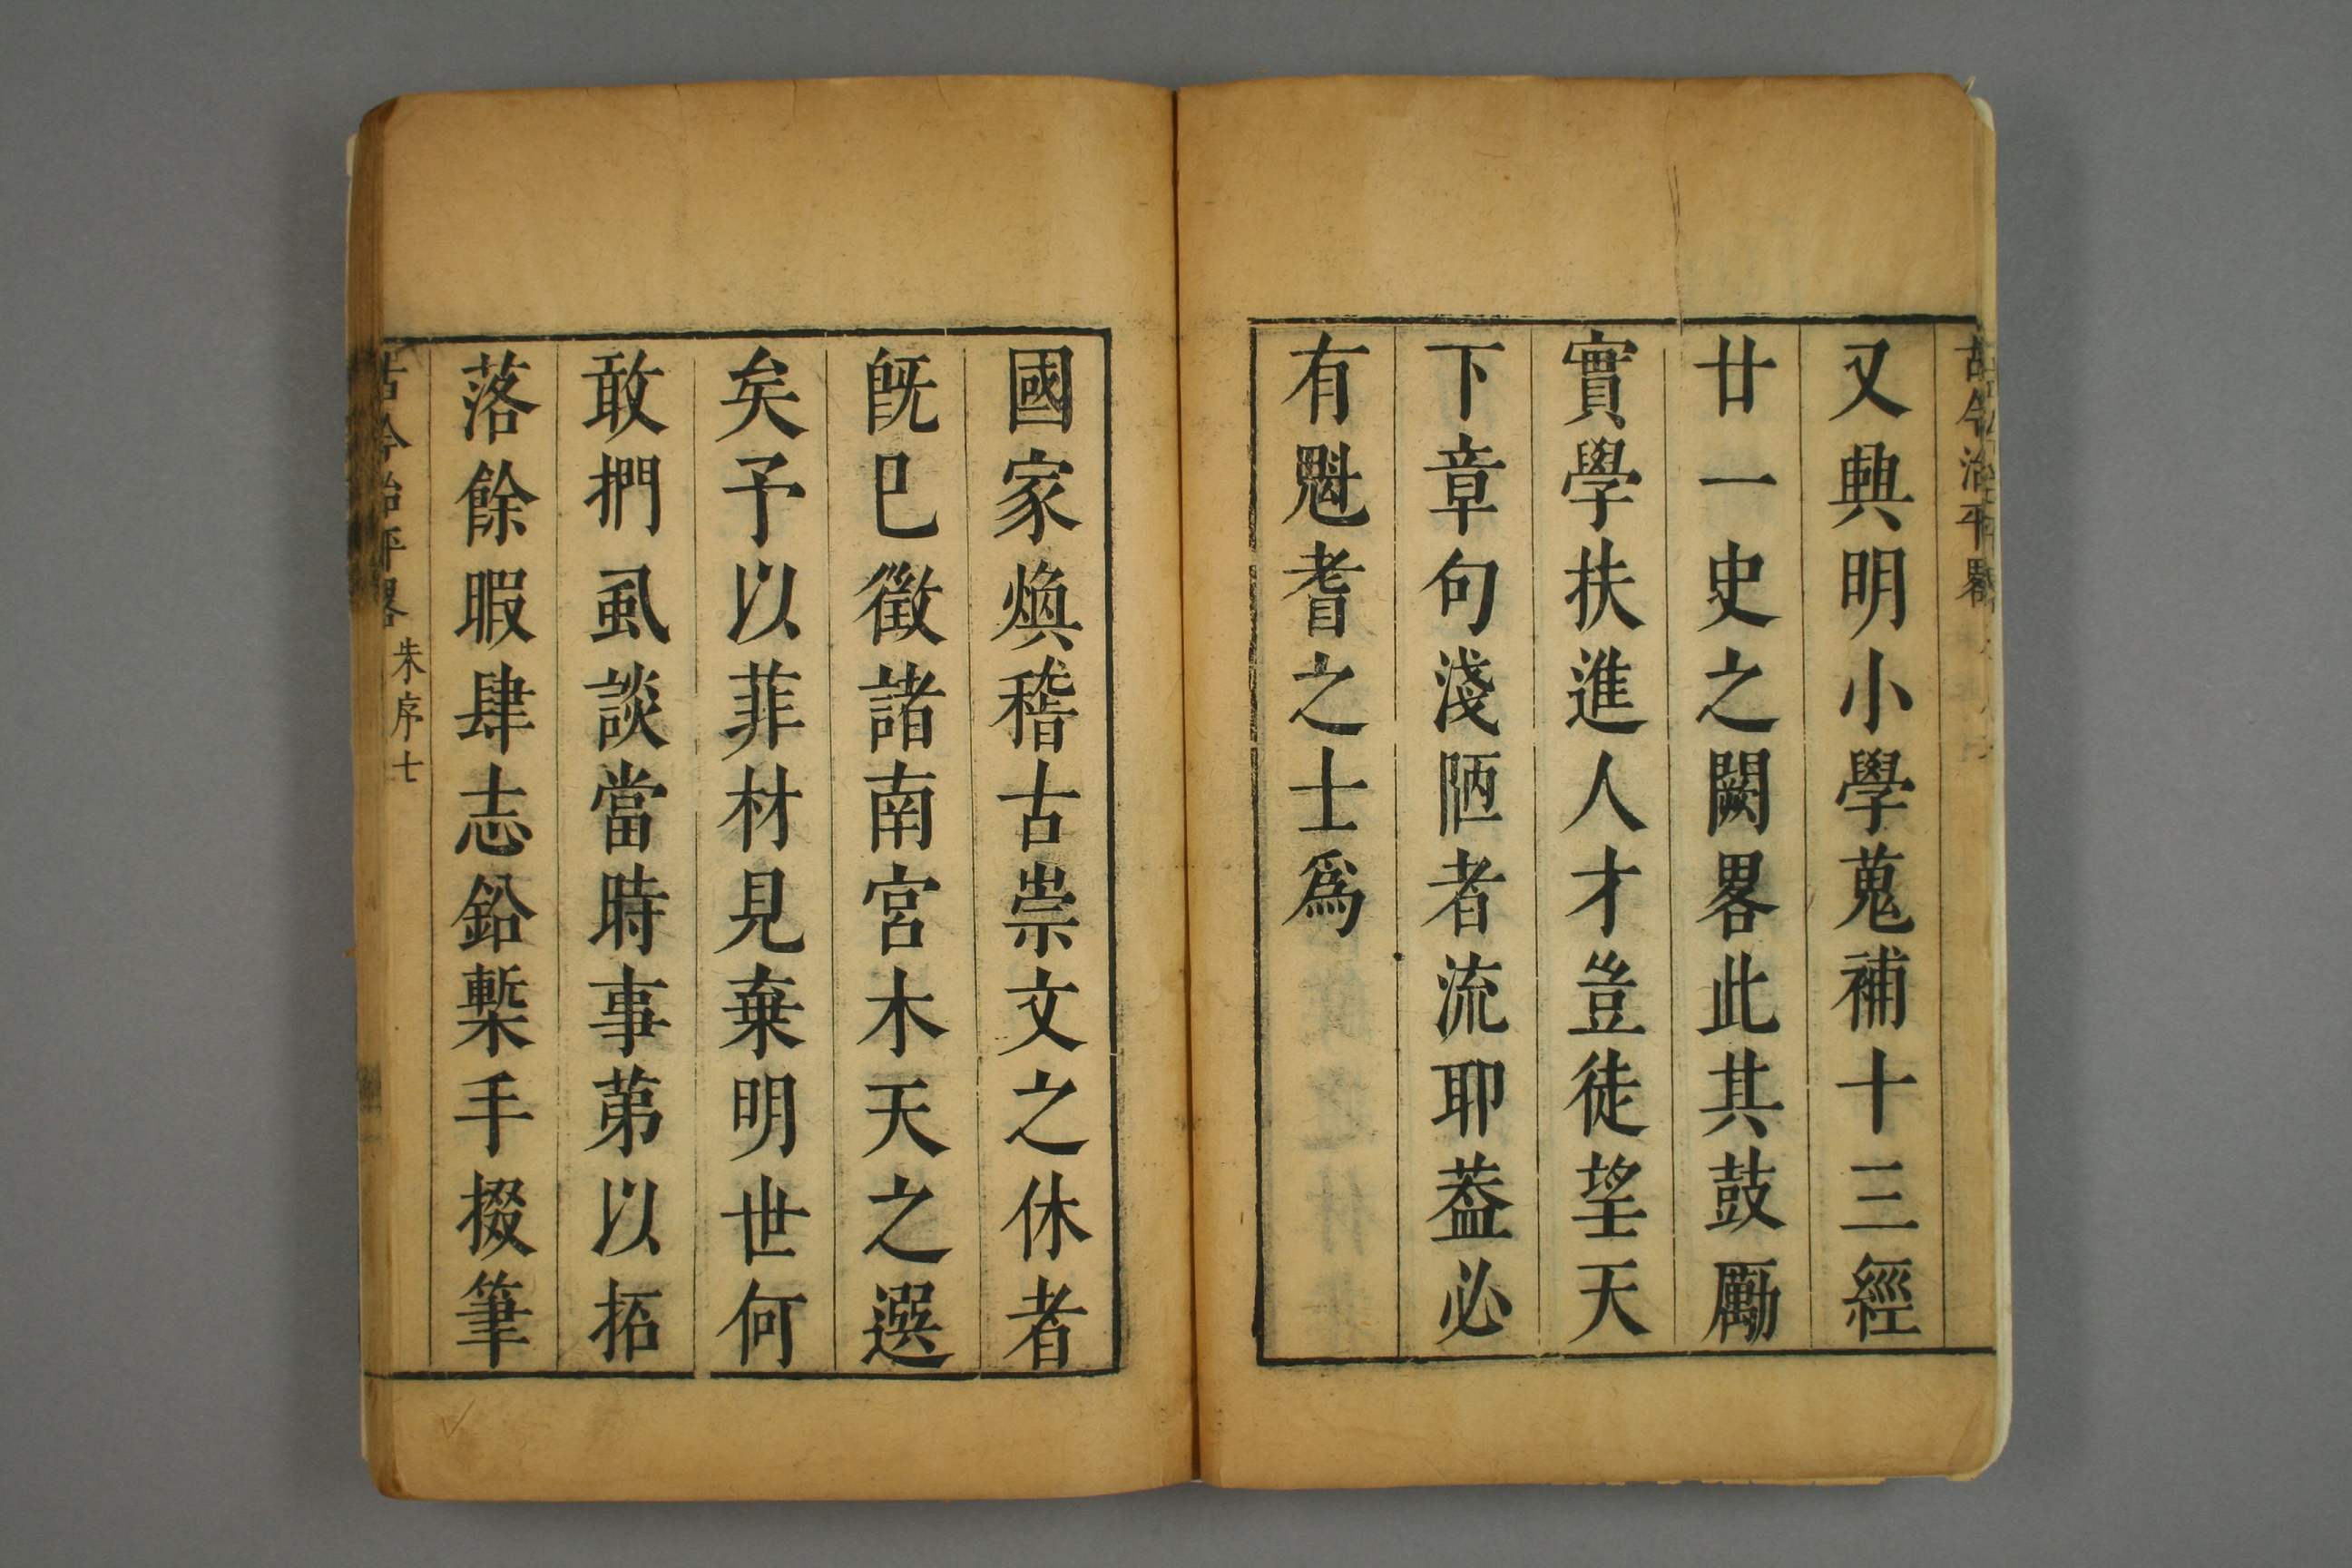 古今治平畧
又興明小學蒐補十三經
廿一史之闕畧此其鼓勵
實學扶進人才豈徒望天
下章句淺陋者流耶葢必
有魁耆之士爲
國家煥稽古崇文之休者
旣巳徵諸南宮木天之選
矣予以菲材見棄明世何
敢捫虱談當時事苐以拓
落餘暇肆志鉛槧手掇筆
古今治平畧 朱序 七